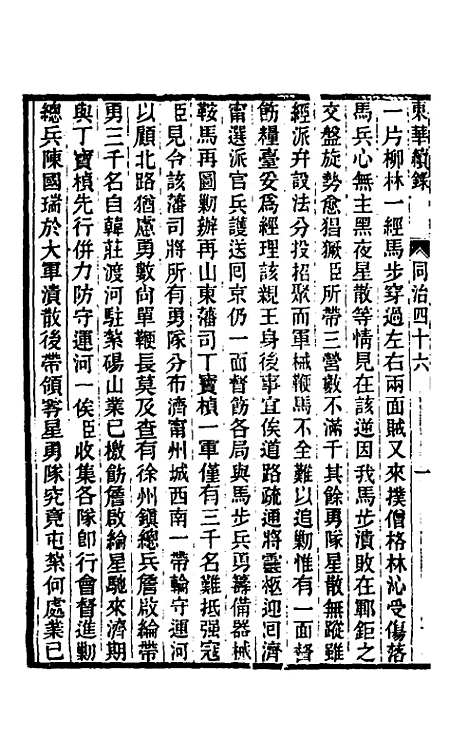 東華續錄 同治四十六 一
一片柳林一經馬步穿過左右兩面賊又來撲僧格林沁受傷落
馬兵心無主黑夜星散等情見在該逆因我馬步潰敗在鄆鉅之
交盤旋勢愈猖獗臣所帶三營數不滿千其餘勇隊星散無蹤雖
經派弁設法分投招聚而軍械鞭馬不全難以追勦惟有一面督
飭糧臺妥為經理該親王身後事宜俟道路疏通將靈柩迎回濟
甯選派官兵護送回京仍一面督飭各局與馬步兵勇籌備器械
鞍馬再圖勦辦再山東藩司丁寶楨一軍僅有三千名難抵强寇
臣見令該藩司將所有勇隊分布濟甯州城西南一帶輪守運河
以顧北路猶慮勇數尙單鞭長莫及查有徐州鎮總兵詹啟綸帶
勇三千名自韓莊渡河駐紮碭山業已檄飭詹啟綸星馳來濟期
與丁寶楨先行併力防守運河一俟臣收集各隊卽行會督進勦
總兵陳國瑞於大軍潰散後帶領零星勇隊究竟屯紮何處業已